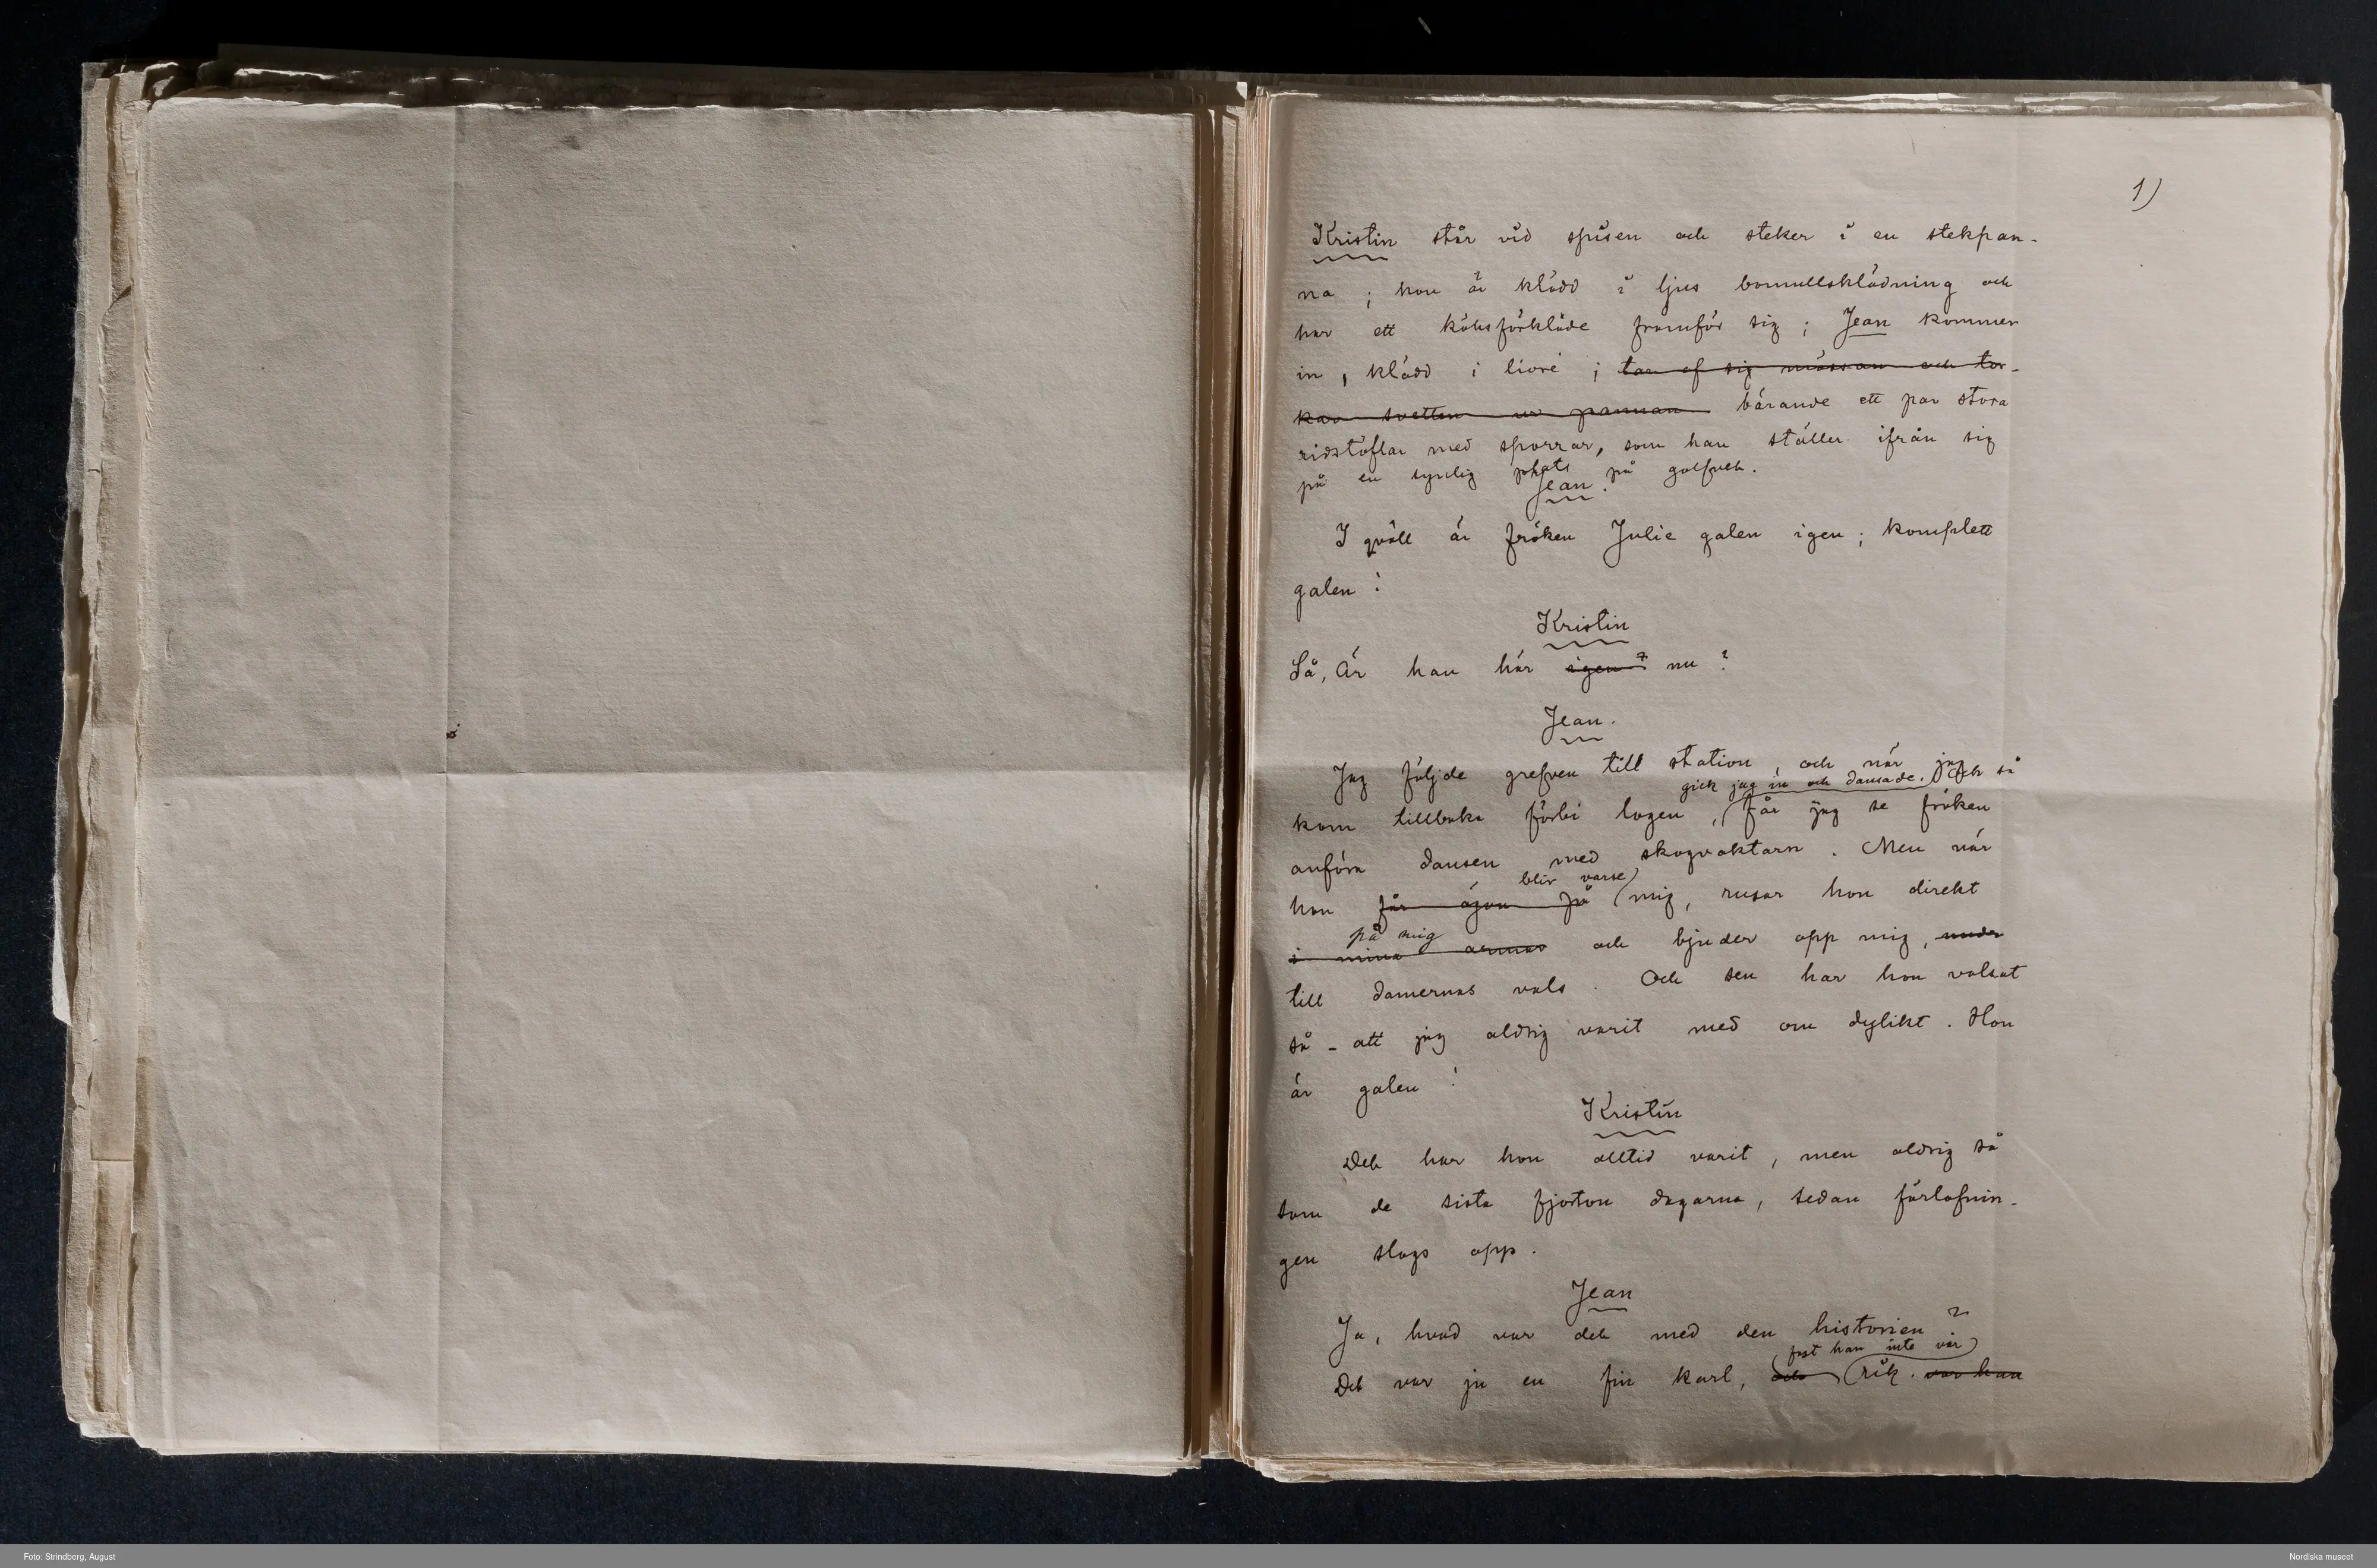 1)
Kristin står vid spisen och steker i en stekpan-
na; hon är klädd i ljus bomullsklädning och
har ett köksförkläde framför sig; Jean kommer
in, klädd i livré; tar af sig mössan och tor-
kar svetten ur pannan bärande ett par stora
ridstöflar med sporrar, som han ställer ifrån sig
på en synlig plats på golfvet.
Jean.
I qväll är fröken Julie galen igen; komplett
galen!
Kristin
Så, Är han här igen? nu?
Jean.
Jag följde grefven till station, och när jag
gick jag in och dansade. Och så
kom tillbaka förbi logen, får jag se fröken
anföra dansen med skogvaktarn. Men när
blir varse
hon får ögon på mig, rusar hon direkt
på mig
i mina armar och bjuder opp mig,
till damernas vals. Och sen har hon valsat
så - att jag aldrig varit med om dylikt. Hon
är galen!
Kristin
Det har hon alltid varit, men aldrig så
som de sista fjorton dagarna, sedan förlofnin-
gen slogs opp.
Jean
Ja, hvad var det med den historien?
fast han inte var
Det var ju en fin karl, och rik. var han
Foto: Strindberg, August
Nordiska museet